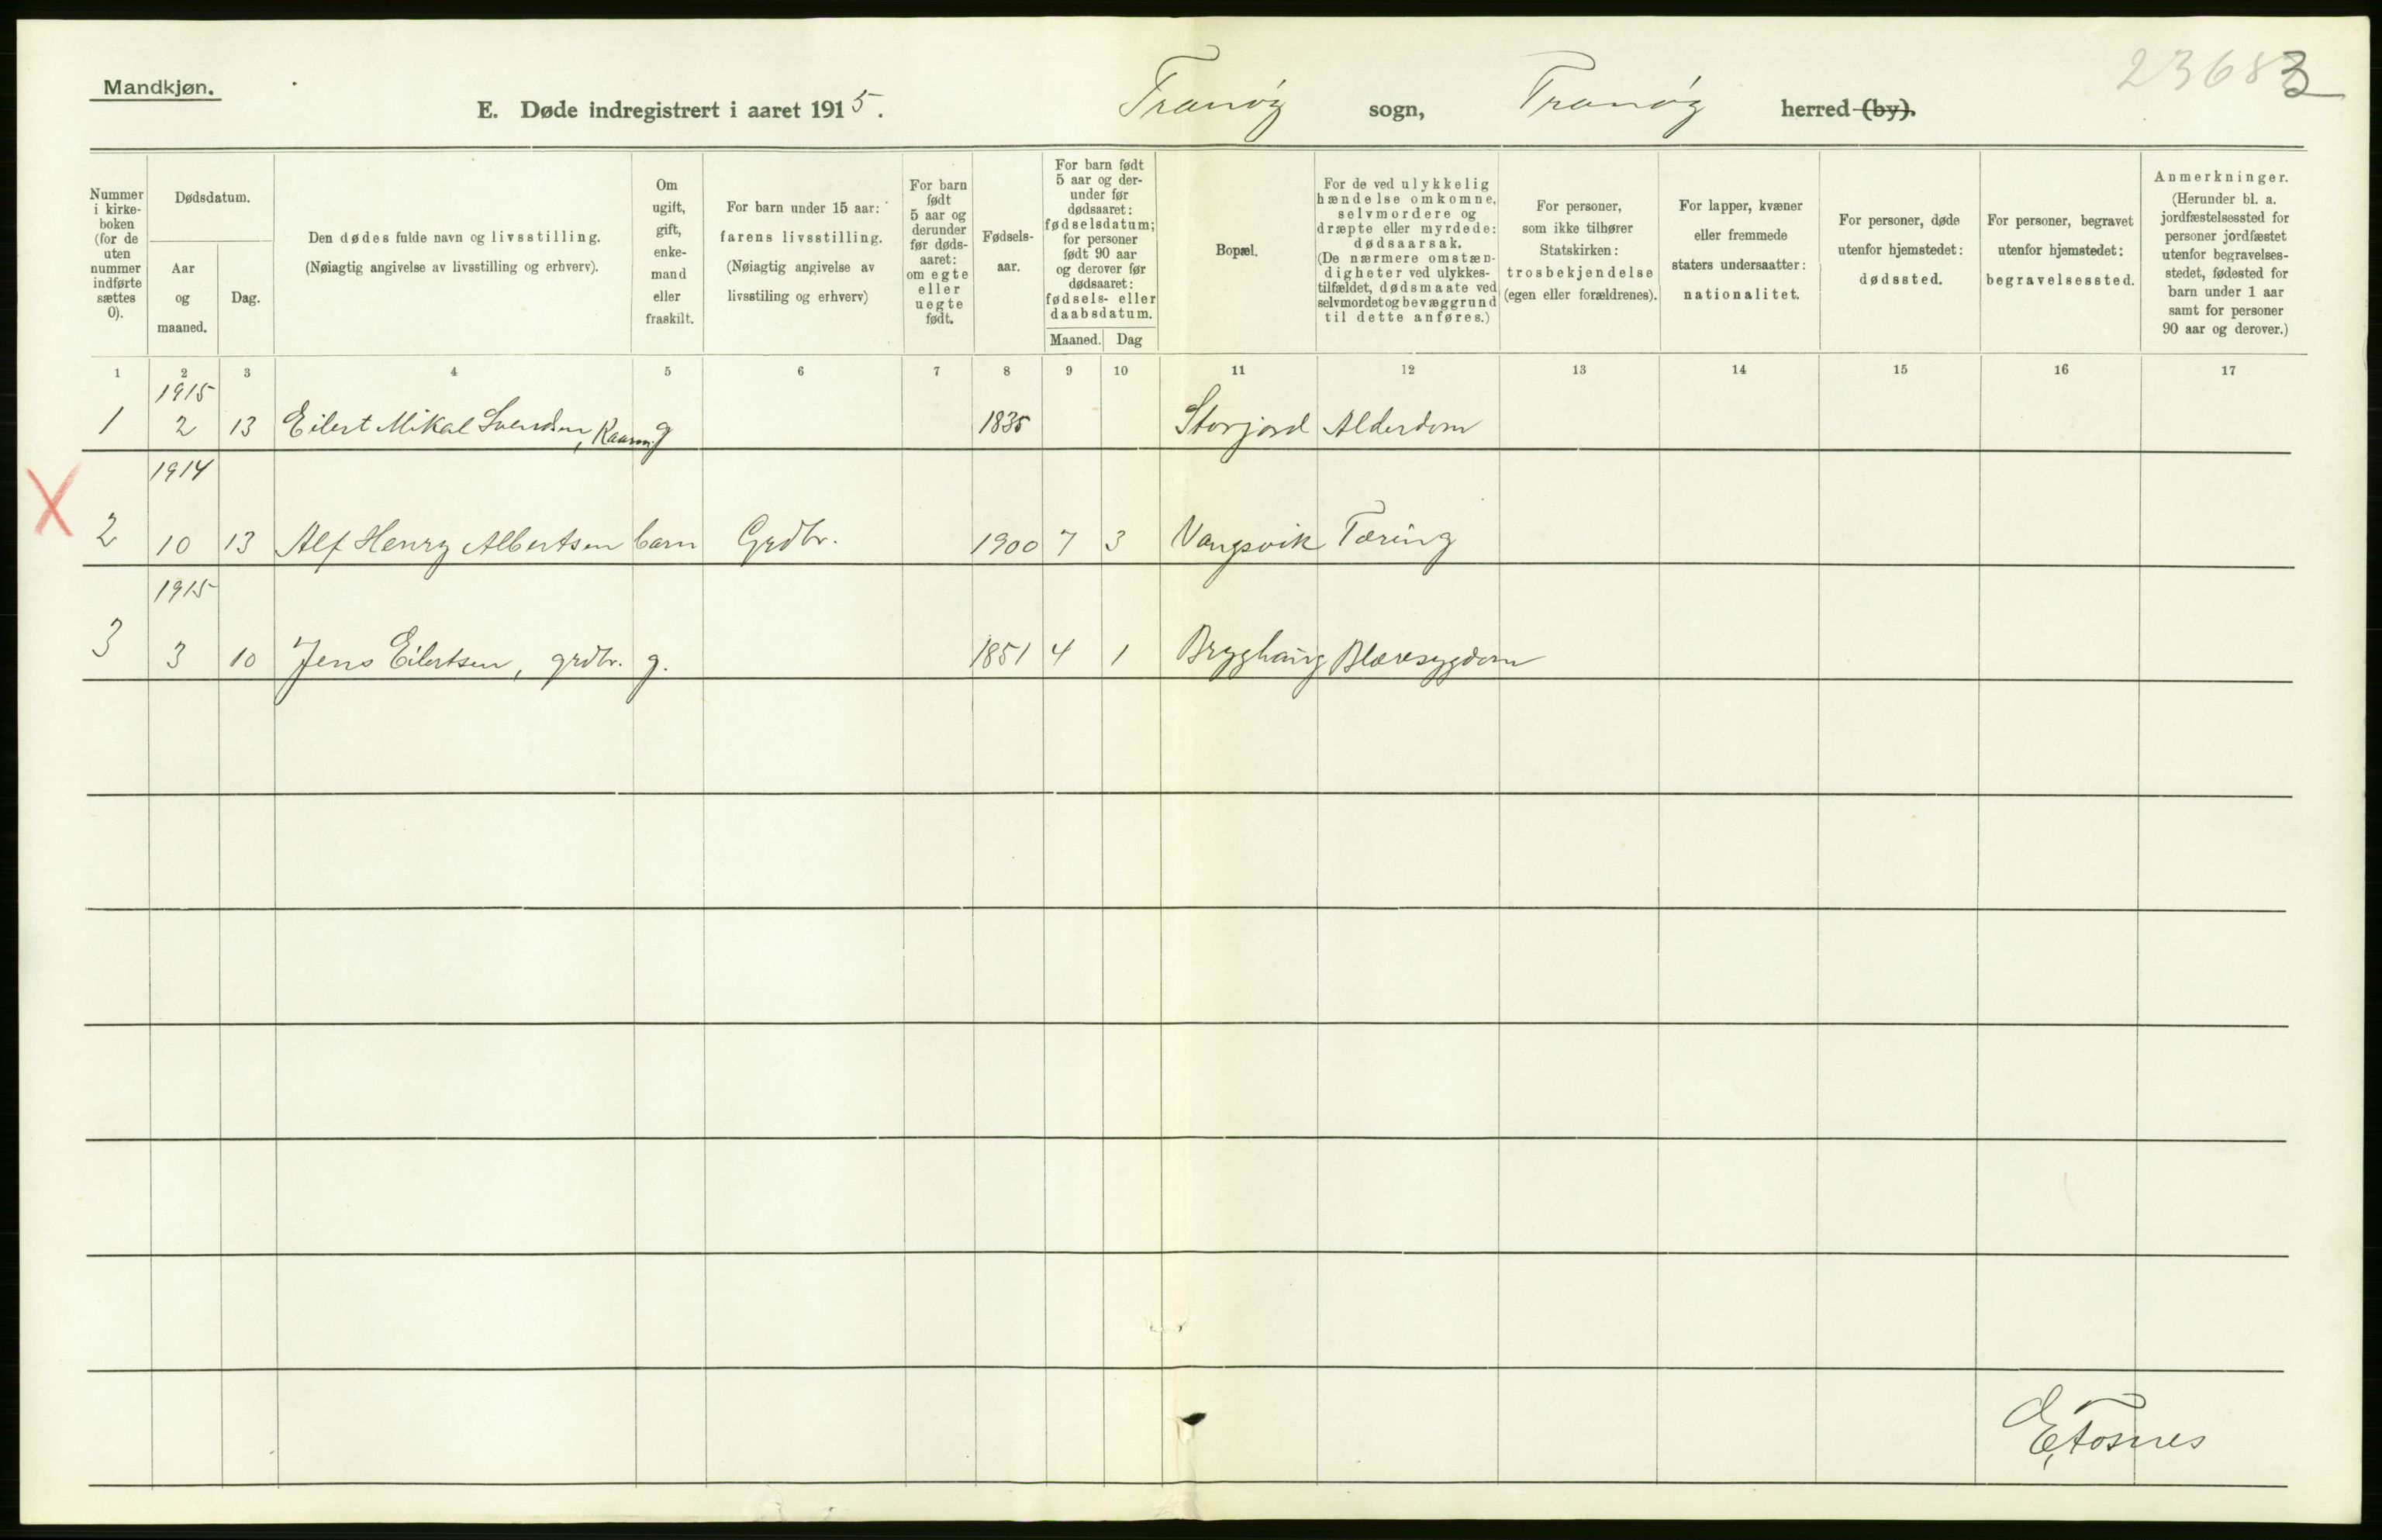 Mandkjøn.
23683
E. Døde indregistrert i aaret 1915. Tranøy sogn, Tranøy herred (by).
Nummer i kirke- boken (for de uten nummer indførte sættes 0).
Dødsdatum.
Aar og maaned.
Dag.
Den dødes fulde navn og livsstilling.
(Nøiagtig angivelse av livsstilling og erhverv).
Om ugift, gift, enke- mand eller fraskilt.
For barn under 15 aar:
farens livsstilling.
(Nøiagtig angivelse av
livsstiling og erhverv)
For barn født 5 aar og derunder før døds- aaret: om egte eller uegte født.
Fødsels- aar.
For barn født 5 aar og der- under før dødsaaret: fødselsdatum; for personer født 90 aar og derover før dødsaaret: fødsels- eller daabsdatum.
Maaned. Dag
Bopæl.
For de ved ulykkelig hændelse omkomne, selvmordere og dræpte eller myrdede: dødsaarsak. (De nærmere omstæn- digheter ved ulykkes- tilfældet, dødsmaate ved selvmordet og bevæggrund til dette anføres.)
For personer, som ikke tilhører Statskirken: trosbekjendelse (egen eller forældrenes).
For lapper, kvæner eller fremmede staters undersaatter: nationalitet.
For personer, døde utenfor hjemstedet: dødssted.
For personer, begravet utenfor hjemstedet: begravelsessted.
Anmerkninger. (Herunder bl. a. jordfæstelsessted for personer jordfæstet utenfor begravelses- stedet, fødested for barn under 1 aar samt for personer 90 aar og derover.)
1 2 3 4 5 6 7 8 9 10 11 12 13 14 15 16 17
1915
1 2 13 Eilert Mikal Svendsen, Kaarm. g 1835 Storjord Alderdom
1914
X 2 10 13 Alf Henry Albertsen barn Grdbr. 1900 7 3 Vangsvik Tæring
1915
3 3 10 Jens Eilertsen, grdbr. g. 1851 4 1 Brygghaug Blæresygdom
E. Fosnes